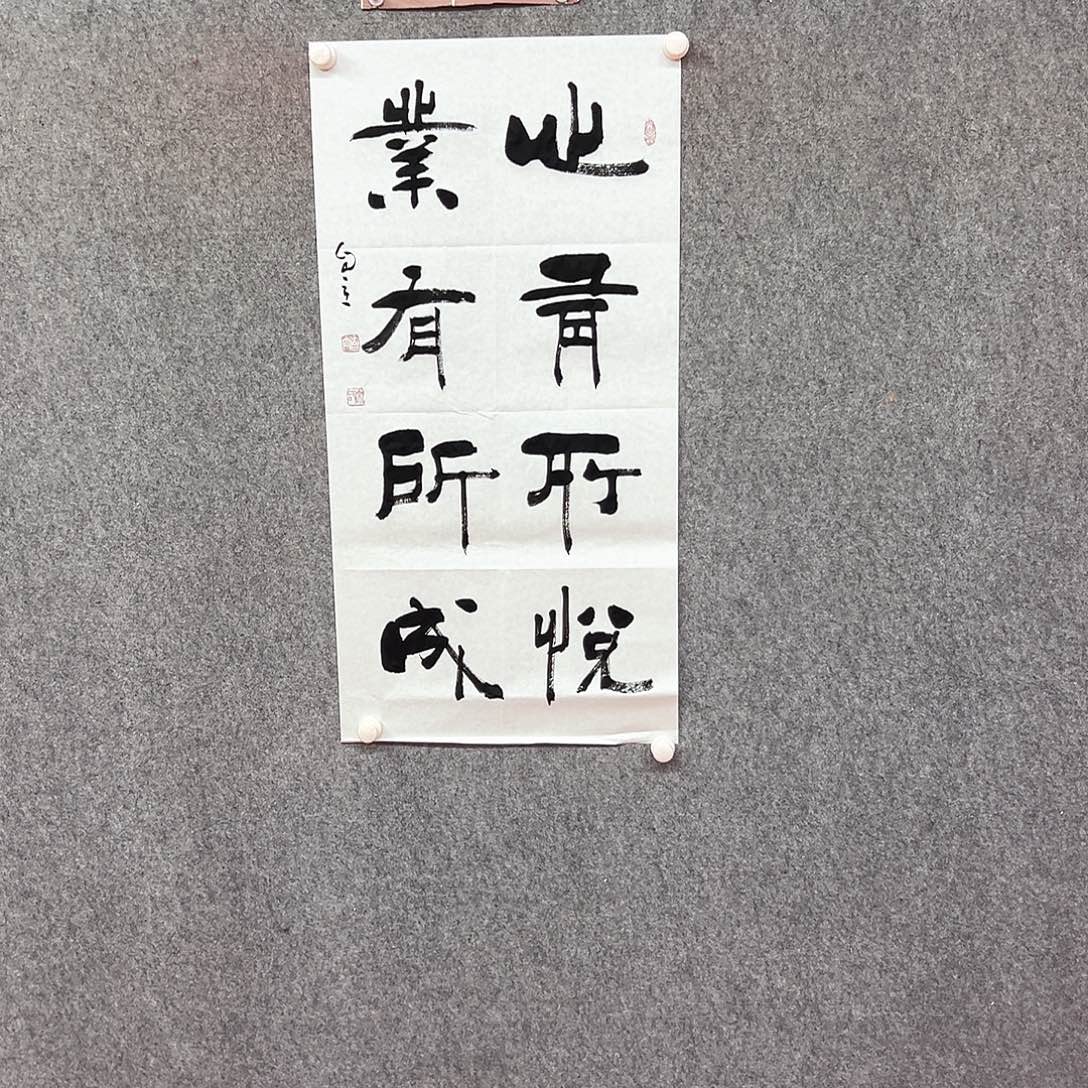 心有所悦
業有所成